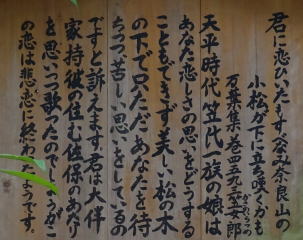 君に恋ひいたもすべなみ奈良山の
小松が下に立ち嘆くかも
万葉集 巻四 五九三 笠女郎
かさのいらつめ
天平時代、笠氏一族の娘は
あなた恋しさの思いをどうする
こともできず美しい松の木
の下で只ただあなたを待
ちつつ苦しい思いをしているの
ですと訴えます。君は大伴
家持。彼の住む佐保のあたり
を思いつつ歌ったのでしょうがこ
の恋は悲恋に終わったようです。